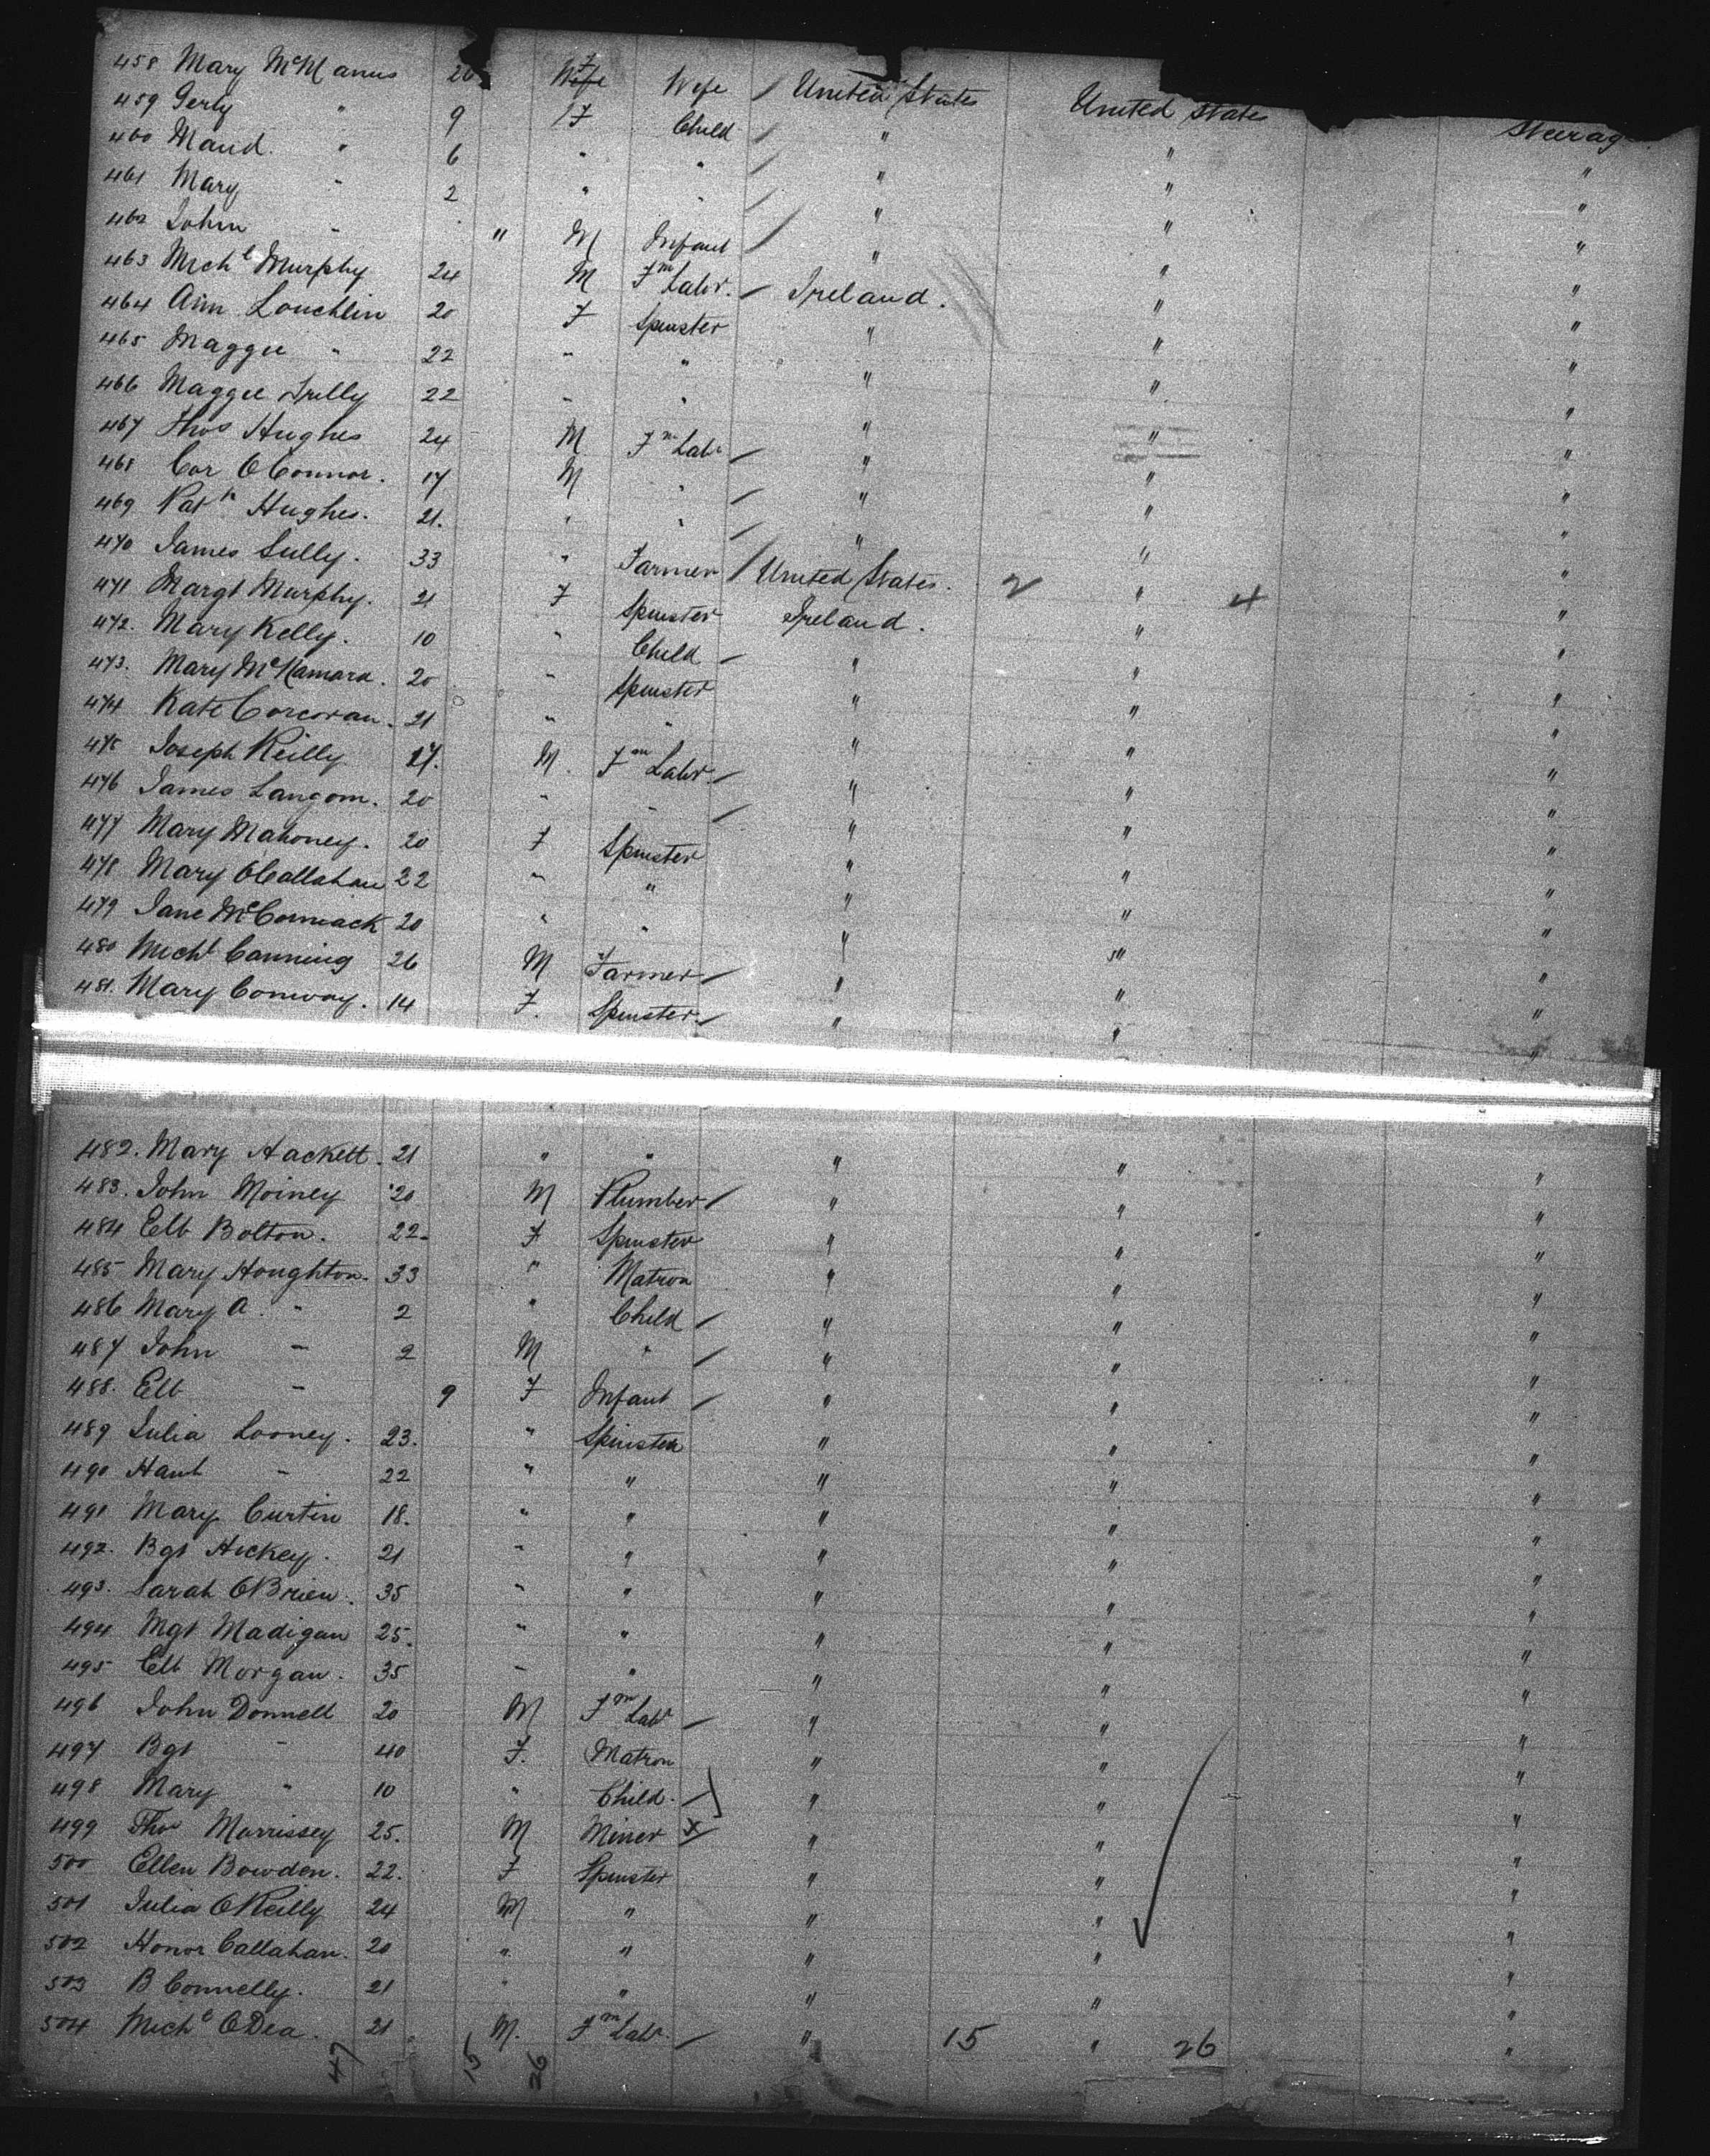 458 Mary McManus Wife F Wife / United States United States Steerag
459 Gerty " 9 F Child / " " "
460 Maud. " 6 " " / " " "
461 Mary " 2 " " / " " "
462 John " " M Infant / " " "
463 Michl Murphy 24 M Fm Labr. / Ireland. " "
464 Ann Louchlin 20 F Spinster " " "
465 Maggie " 22 " " " " "
466 Maggie 22 " " " " "
467 Thos Hughes 24 M Fm Labr / " " "
468 Cor OConnor. 17 M " / " " "
469 Patk Hughes. 21. " " / " " "
470 James 33 " Farmer / United States. 2 " 4 "
471 Margt Murphy. 21 F Spinster Ireland. " "
472. Mary Kelly. 10 " Child / " " "
473. Mary McNamara. 20 " Spinster " " "
474 Kate Corcoran. 21 " " " " "
475 Joseph Reilly 17. M. Fm Labr. / " " "
476 James Langom. 20 " " / " " "
477 Mary Mahoney. 20 F Spinster " " "
478 Mary OCallahan 22 " " " " "
479 Jane McCormack 20 " " " " "
480 Michl Canning 26 M Farmer / " " "
481. Mary Conway. 14 F. Spinster. / " " "
482. Mary Hackett. 21 " " " " "
483. John Moiney 20 M Plumber / " " "
484 Elb Bolton. 22 F Spinster " " "
485 Mary Houghton. 33 " Matron " " "
486 Mary A. " 2 " Child / " " "
487 John " 2 M " / " " "
488. Elb " 9 F Infant / " " "
489 Julia Looney. 23. " Spinster " " "
490 Hanh " 22 " " " " "
491 Mary Curtin 18. " " " " "
492. Bgt Hickey. 21 " " " " "
493. Sarah OBrien. 35 " " " " "
494 Mgt Madigan 25. " " " " "
495 Elb Morgan. 35 " " " " "
496 John Donnell 20 M Fm Labr / " " "
497 Bgt " 40 F. Matron " " "
498 Mary " 10 " Child. / " " "
499 Thos Morrissey 25. M Miner x / " " "
500 Ellen Bowden. 22. F Spinster " " "
501 Julia OReilly 24 M " " " "
502 Honor Callahan. 20 " " " " "
503 B Connelly. 21 " " " " "
504 Michl ODea. 21 M. Fm Labr. / " 15 " 26 "
47 15 26